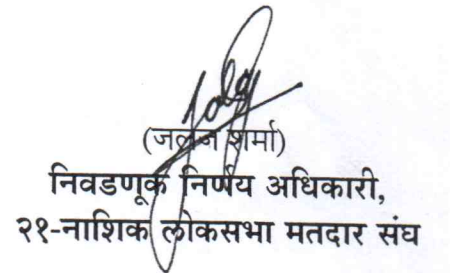 (जलज शर्मा)
निवडणूक निर्णय अधिकारी,
२१-नाशिक लोकसभा मतदार संघ